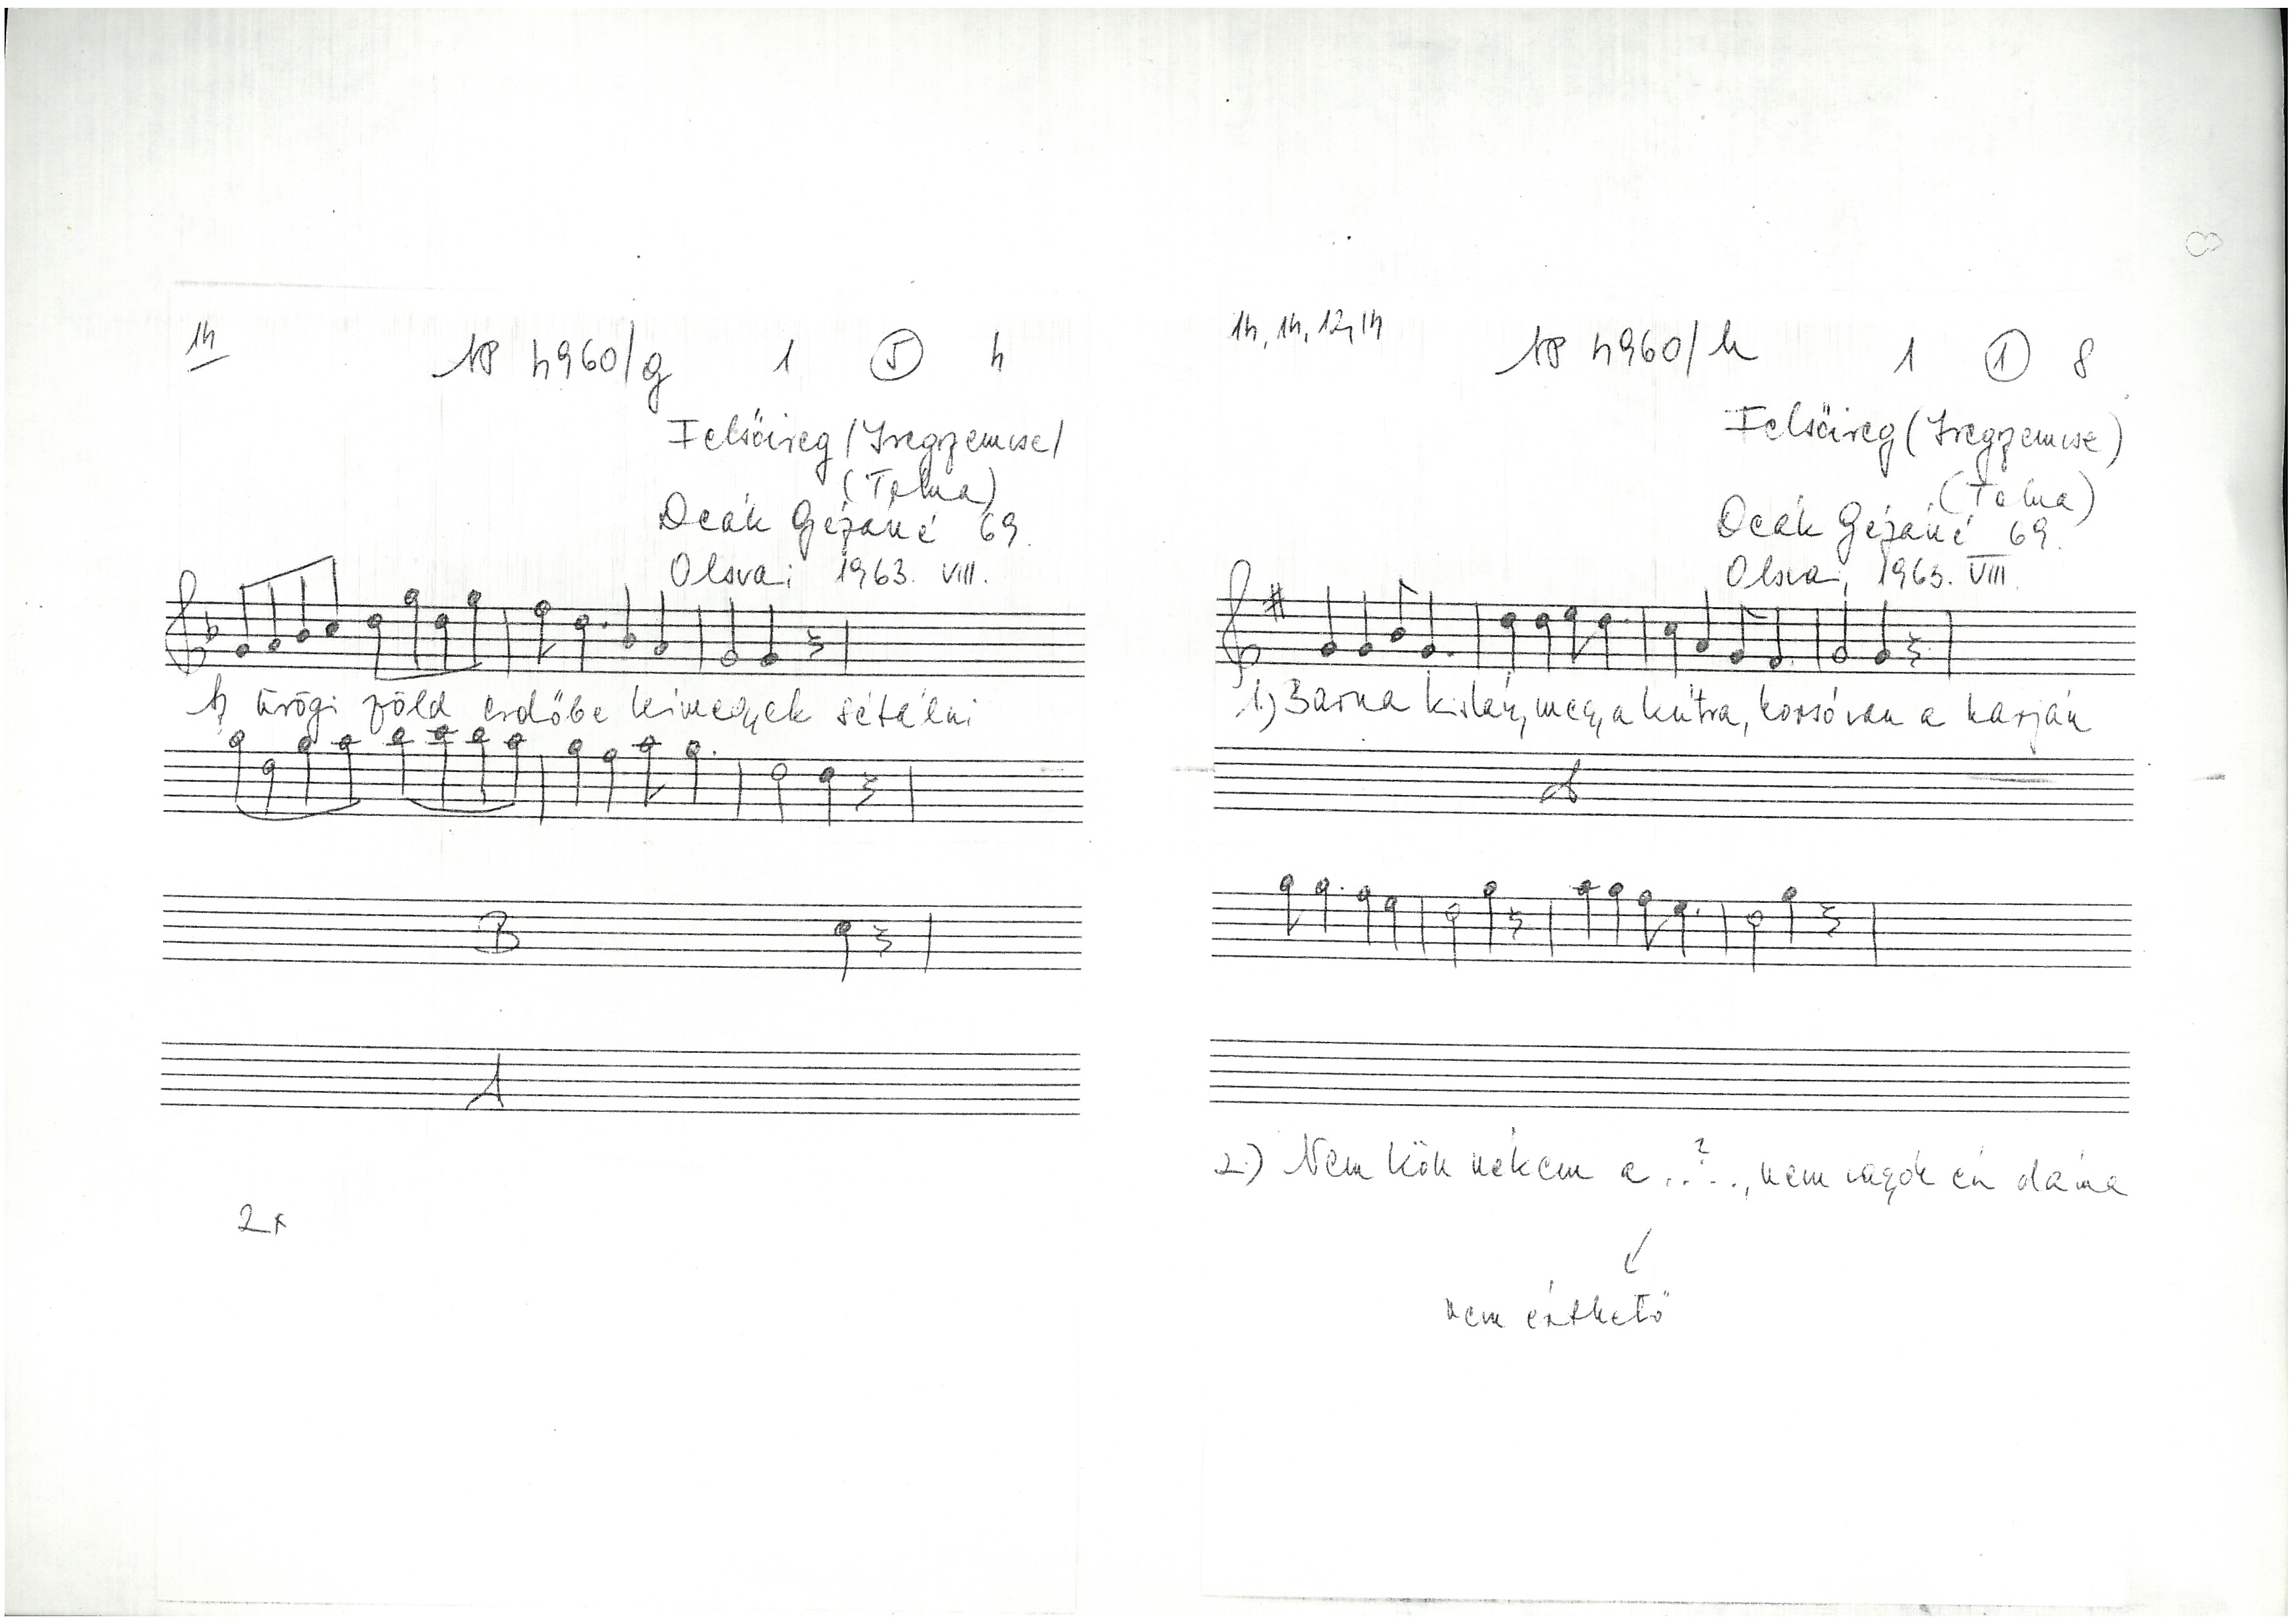 14
AP 4960/g 1 5 4
Felsőireg /Iregszemcse/
(Tolna)
Deák Gézáné 69.
Olsvai 1963. VIII.
Az ürögi zöld erdőbe kimegyek sétálni
B
A
2x
14, 14, 12, 14
AP 4960/h 1 1 8
Felsőireg (Iregszemcse)
(Tolna)
Deák Gézáné 69.
Olsvai, 1963. VIII.
1.) Barna kislány megy a kútra, korsó van a karján
A
2.) Nem köll nékem a ..?.., nem vagyok én dáma
nem érthető